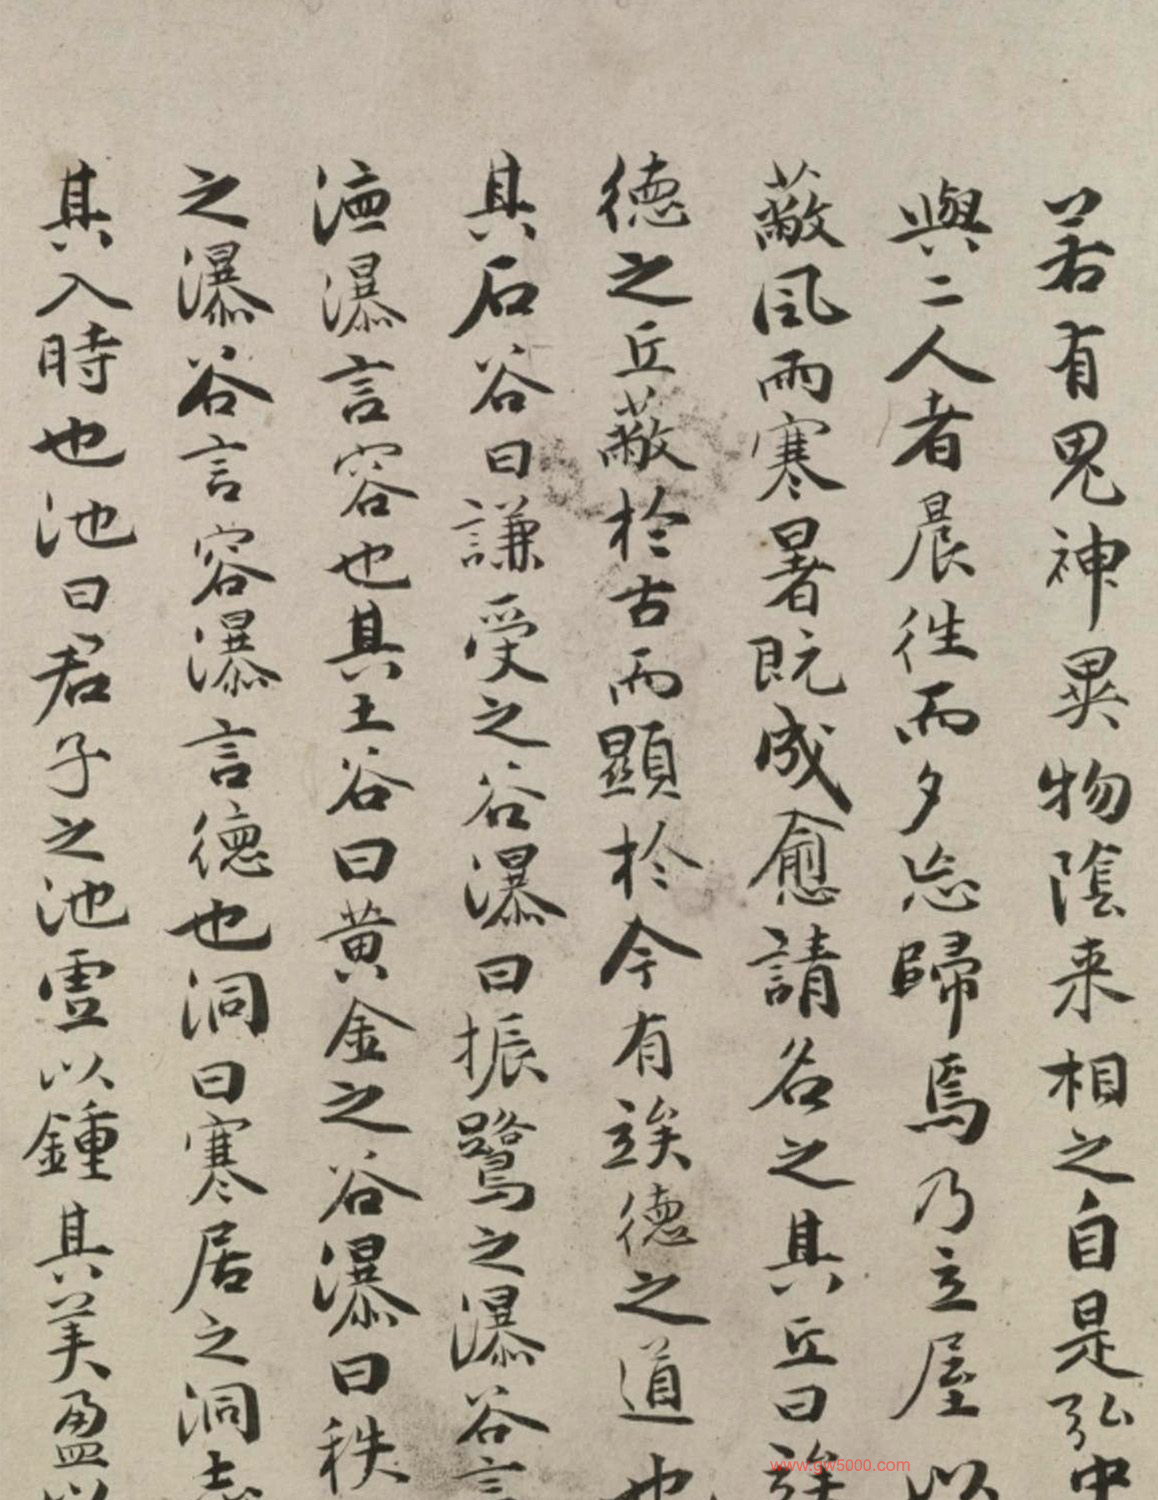 若有鬼神異物陰来相之自是弘中
與二人者晨往而夕忘歸焉乃立屋以
蔽風雨寒暑既成愈請名之其丘曰竢
德之丘蔽於古而顯於今有竢德之道也
其石谷曰謙受之谷瀑曰振鷺之瀑谷言
德瀑言容也其土谷曰黄金之谷瀑曰秩
之瀑谷言容瀑言德也洞曰寒居之洞志
其入時也池曰君子之池虚以鍾其美盈以
www.gw5000.com